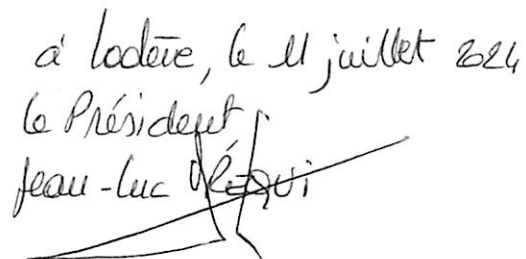 à Lodève, le 11 juillet 2024
le Président
Jean-Luc RÉQUI